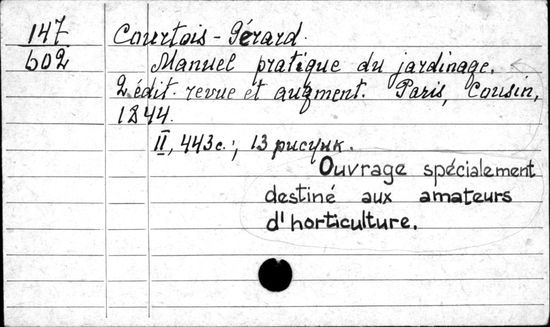 147
602
Courtois-Gérard.
Manuel pratique du jardinage.
2 édit. revue et augment. Paris, Cousin,
1844.
II, 443 с.; 13 рисунк.
Ouvrage spécialement
destiné aux amateurs
d'horticulture.